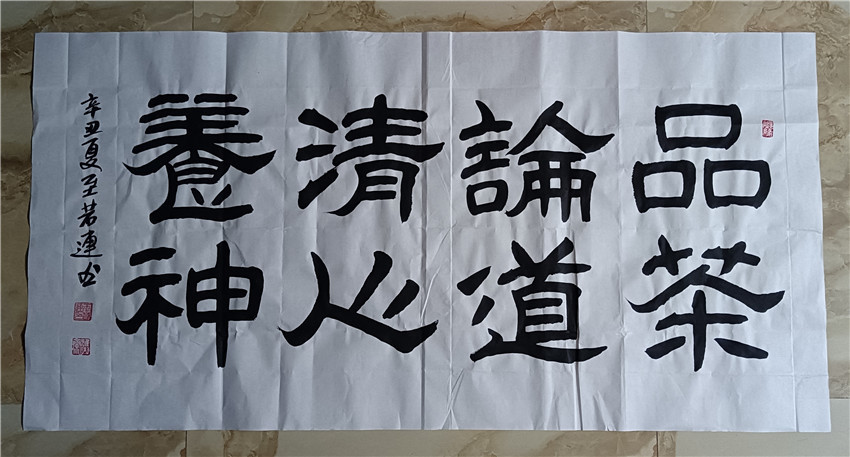 品茶
論道
清心
養神
辛丑夏至若連书